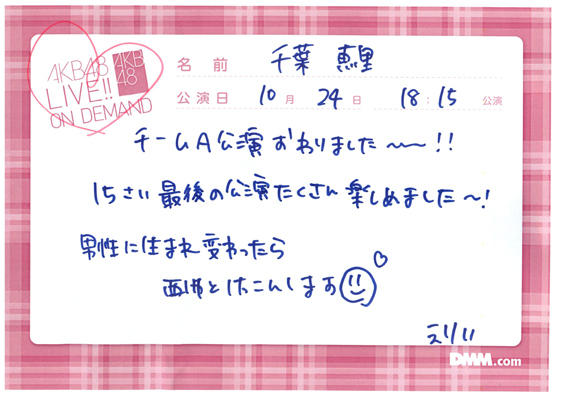 AKB48
LIVE!!
ON DEMAND
AKB
48
名前 千葉 恵里
公演日 10月 24日 18:15 公演
チームA公演おわりました〜〜!!
15さい最後の公演たくさん楽しめました〜!
男性に生まれ変わったら
とけっこんします
えりい
DMM.com